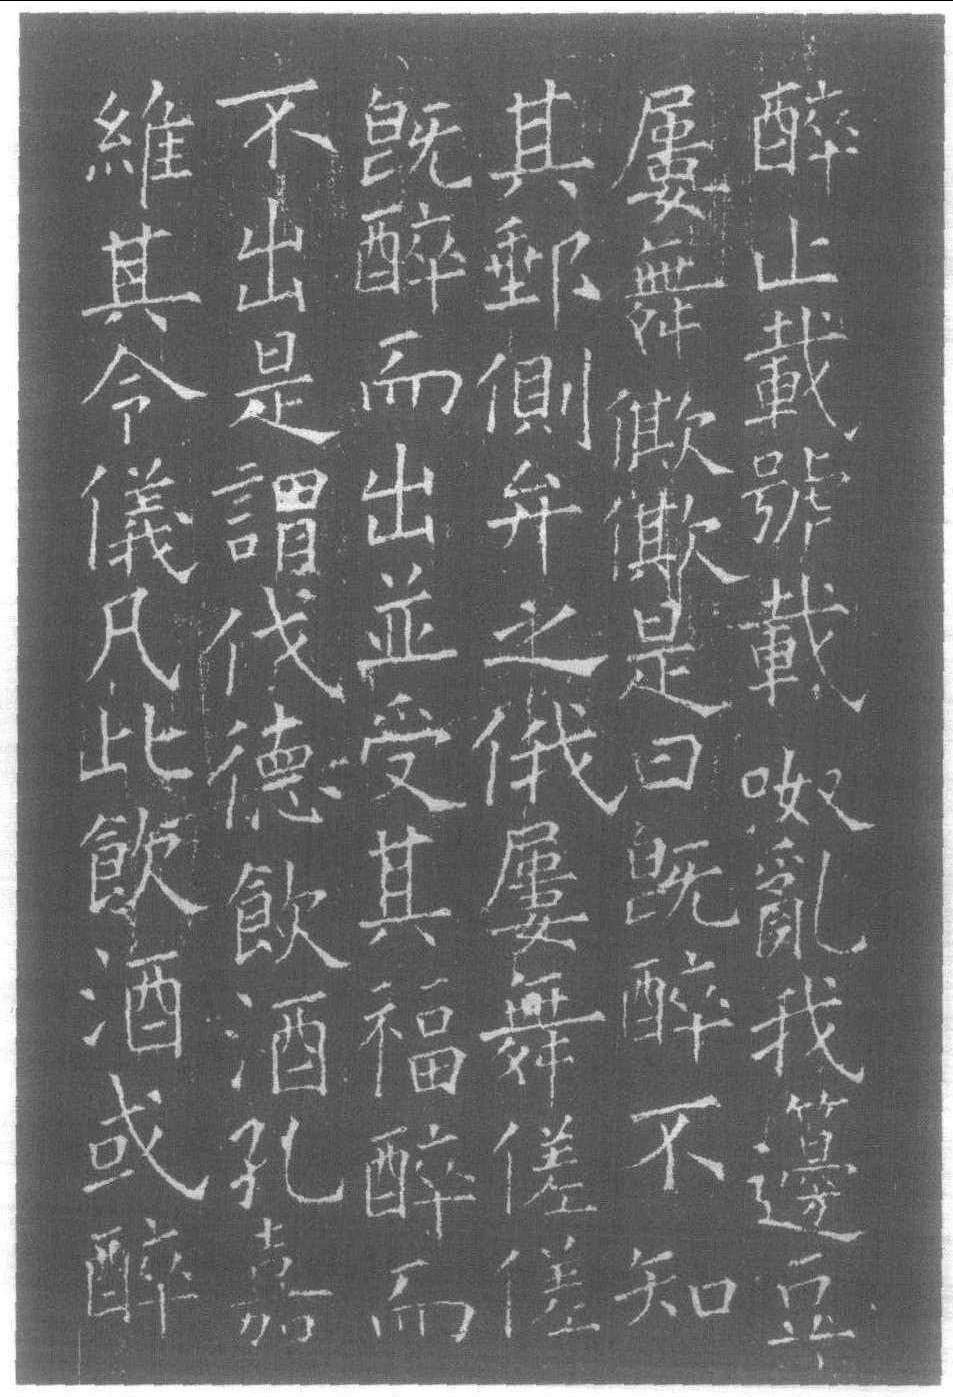 醉止載號載呶亂我籩豆
屢舞僛僛是曰既醉不知
其郵側弁之俄屢舞傞傞
既醉而出並受其福醉而
不出是謂伐德飲酒孔嘉
維其令儀凡此飲酒或醉